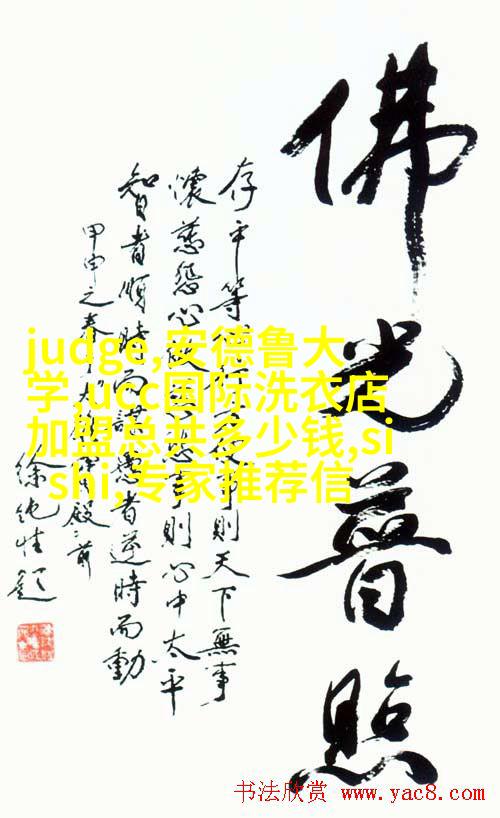 佛光普照
存平等心行方便事則天下無事
懷慈悲心做慈悲事則心中太平
智者順時而謀愚者逆時而動
甲申之春
殿前
徐純性題
judge,安德鲁大
学,ucc国际洗衣店
加盟总共多少钱,si
shi,专家推荐信
书法欣赏 www.yac8.com